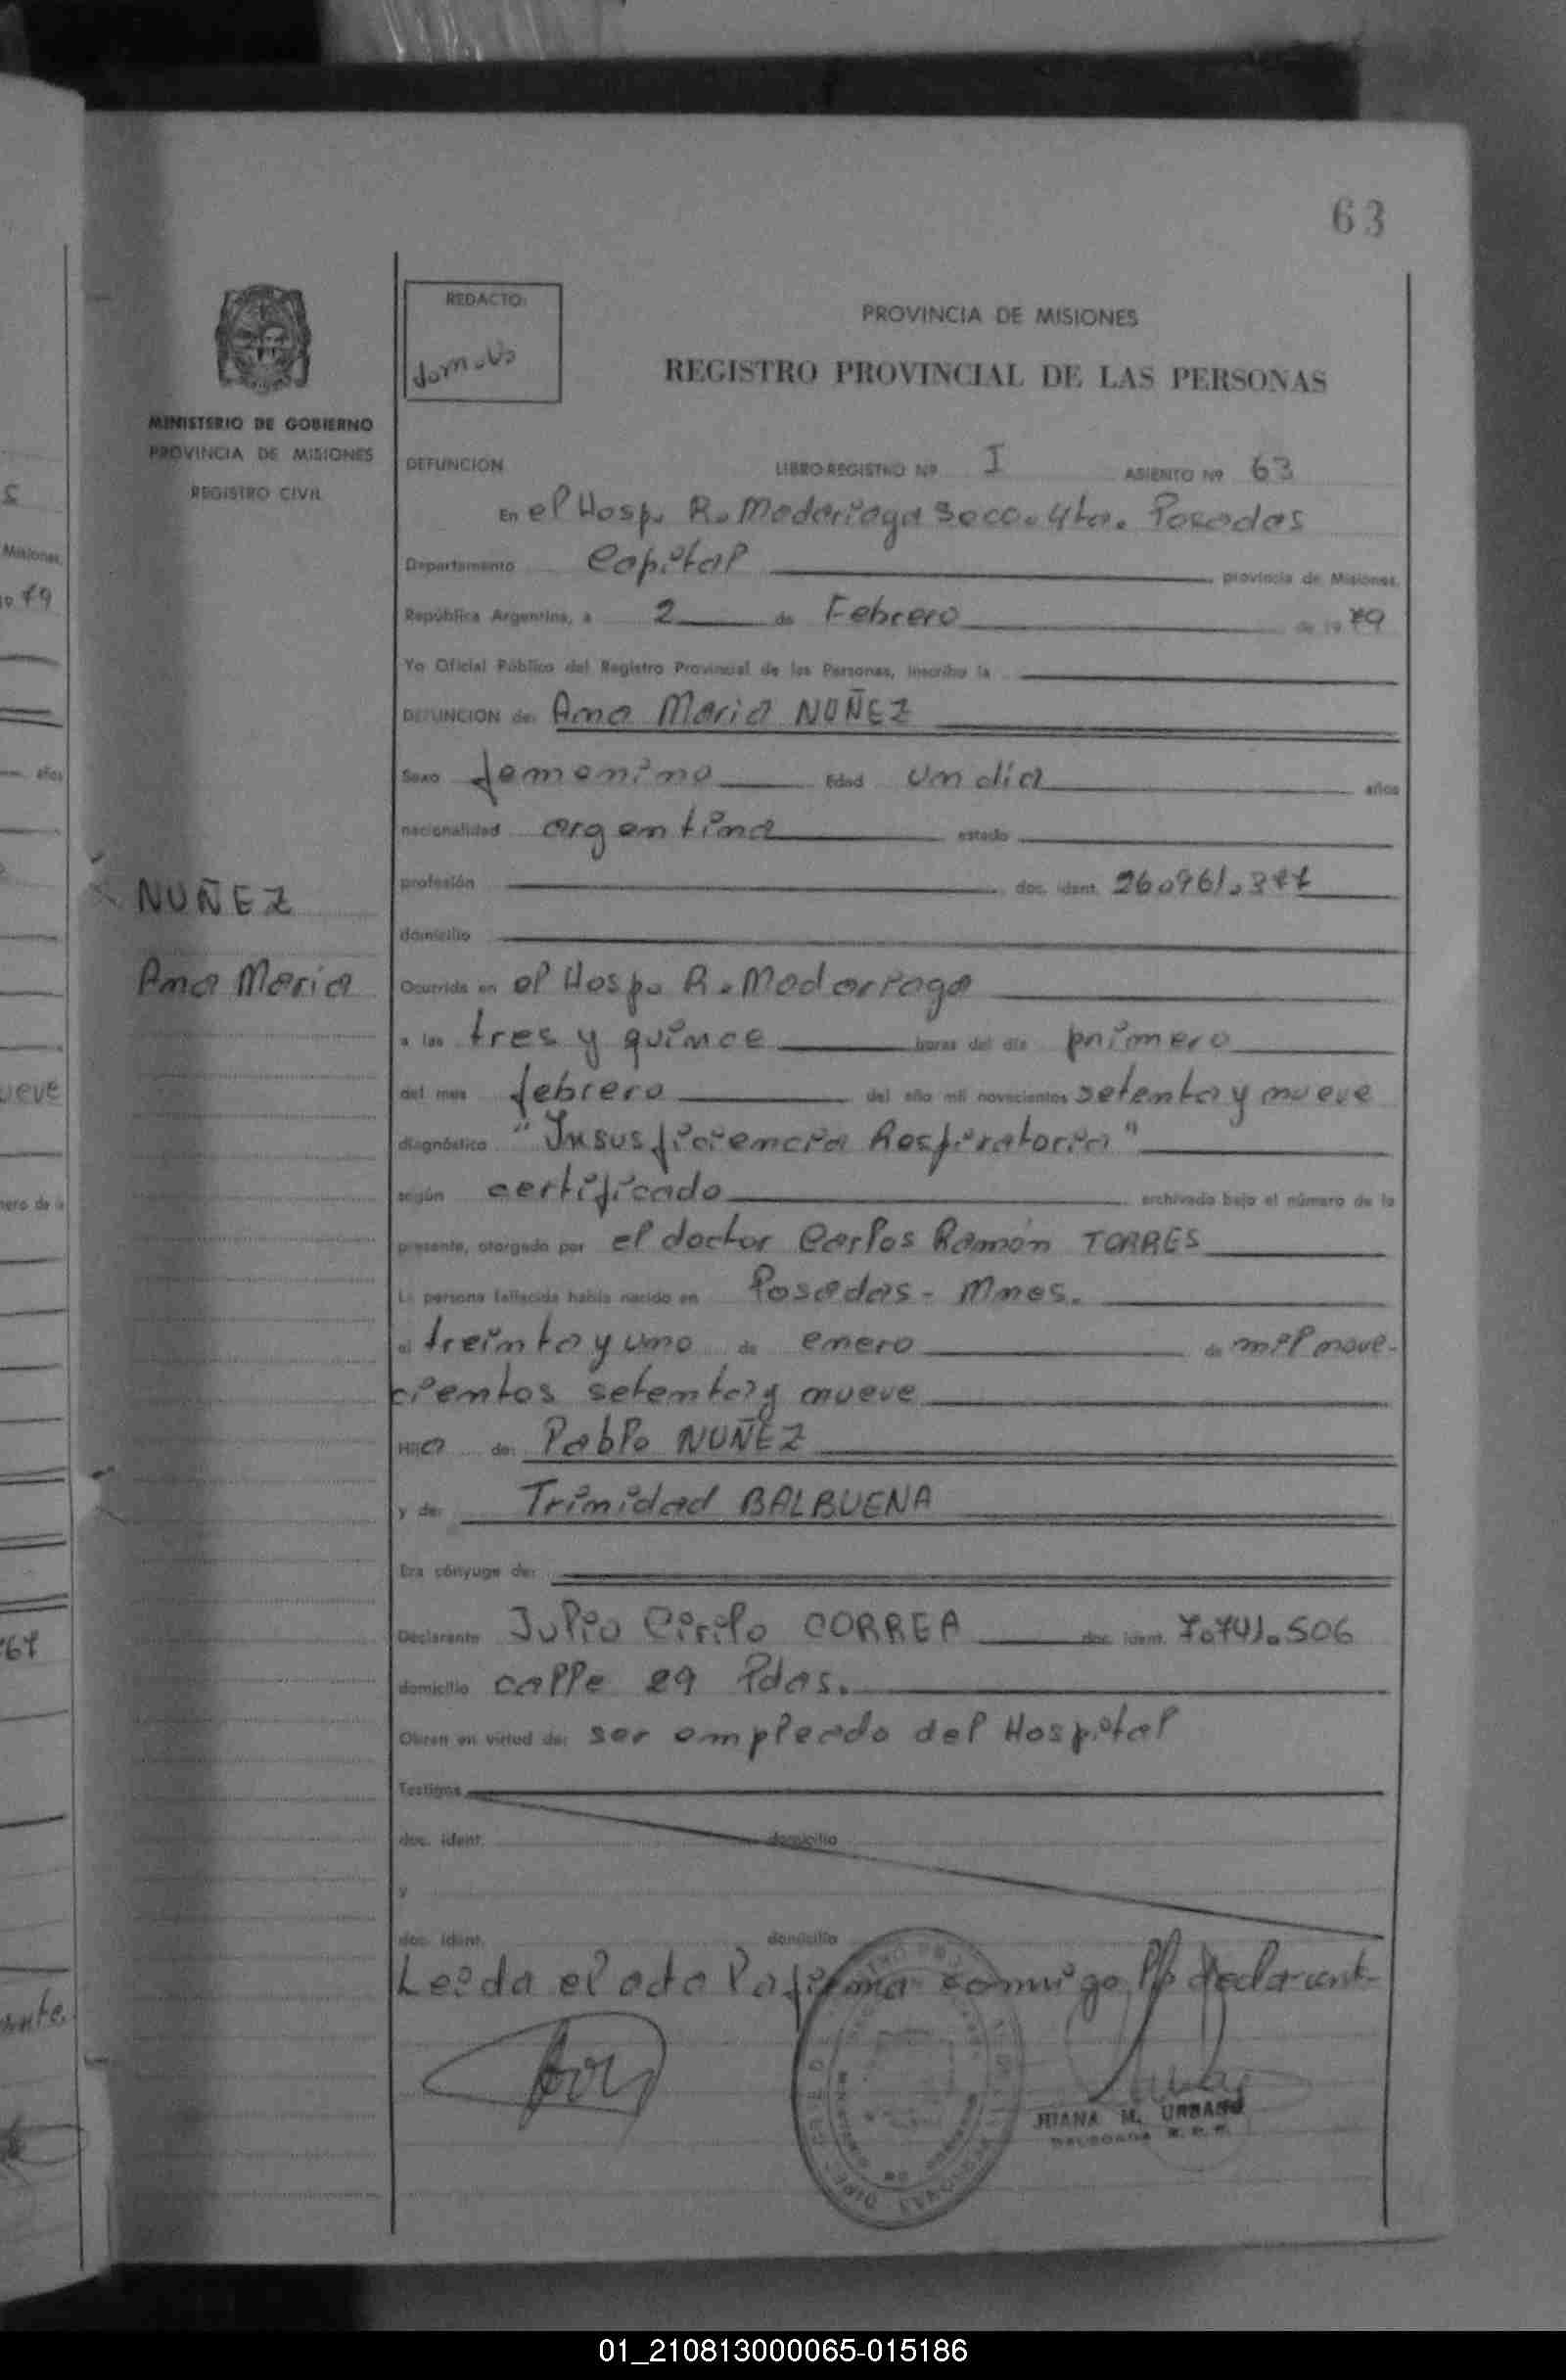 63
REDACTO:
PROVINCIA DE MISIONES
REGISTRO PROVINCIAL DE LAS PERSONAS
MINISTERIO DE GOBIERNO
PROVINCIA DE MISIONES
REGISTRO CIVIL
DEFUNCION LIBRO REGISTRO Nº I ASIENTO Nº 63
En el Hosp. R. Madariaga Secc. 4ta. Posadas
Departamento Capital provincia de Misiones,
República Argentina, a 2 de Febrero de 19 79
Yo Oficial Público del Registro Provincial de las Personas, inscribo la
DEFUNCION de: Ana Maria NUÑEZ
Sexo femenino Edad un dia años
nacionalidad argentina estado
profesión doc. ident. 26.961.377
domicilio
NUÑEZ
Ana Maria
Ocurrida en el Hosp. R. Madariaga
a las tres y quince horas del día primero
del mes febrero del año mil novecientos setenta y nueve
diagnóstico "Insusficiencia Respiratoria"
según certificado archivado bajo el número de la
presente, otorgado por el doctor Carlos Ramón TORRES
La persona fallecida había nacido en Posadas - Mnes.
el treinta y uno de enero de mil nove-
cientos setenta y nueve
Hija de: Pablo NUÑEZ
y de: Trinidad BALBUENA
Era cónyuge de:
Declarante Julio Cirilo CORREA doc. ident. 7.741.506
domicilio calle 29 Pdas.
Obran en virtud de: ser empleado del Hospital
Testigos
doc. ident. domicilio
y
doc. ident. domicilio
Leida el acta la firma conmigo el declarant-
JUANA M. URBANO
DELEGADA R. P. P.
01_210813000065-015186